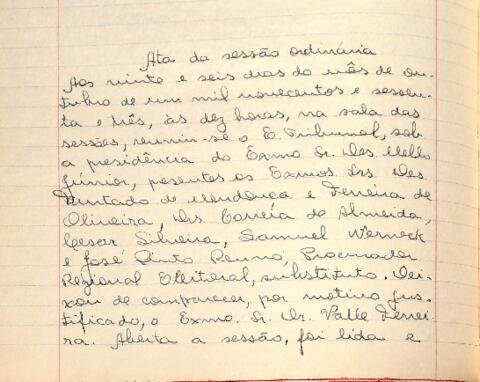 Ata da sessão ordinária
Aos vinte e seis dias do mês de ou-
tubro de um mil novecentos e sessen-
ta e três, às dez horas, na sala das
sessões, reuniu-se o E. Tribunal, sob
a presidência do Exmo Sr. Des. Mello
Júnior, presentes os Exmos. Srs. Des.
Furtado de Mendonça e Ferreira de
Oliveira, Drs. Corrêa de Almeida,
Cesar Silveira, Samuel Werneck
e José Pinto Renno, Procurador
Regional Eleitoral, substituto. Dei-
xou de comparecer, por motivo jus-
tificado, o Exmo. Sr. Dr. Valle Ferrei-
ra. Aberta a sessão, foi lida e